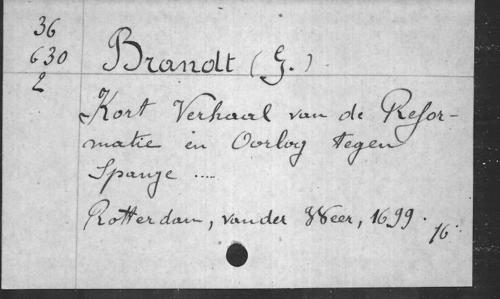 36
630
2
Brandt (G.)
Kort Verhaal van de Refor-
matie en Oorlog tegen
Spanje ....
Rotterdam, vander Weer, 1699.
16°